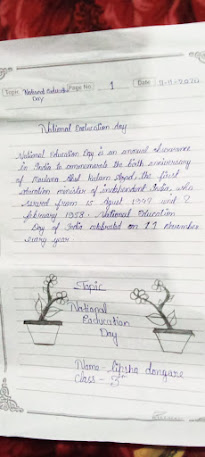 Topic National Education Day
Page No. 1
Date 9-11-2020
National Education day
National Education Day is an annual observance
in India to commemorate the birth anniversary
of Maulana Abul Kalam Azad, the first
education minister of independent India, who
served from 15 August 1947 until 2
february 1958. National Education
Day of India celebrated on 11 November
every year.
Topic
National
Education
Day
Name - lipsha dongare
Class - 5